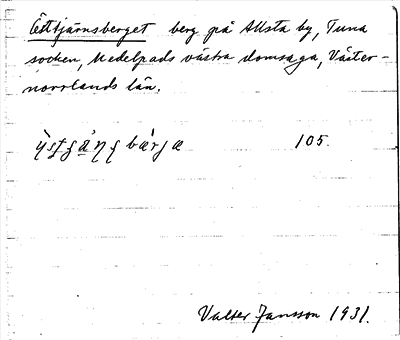 Ättjärnsberget berg på Allsta by, Tuna
socken, Medelpads västra domsaga, Väster-
norrlands län.
105.
Valter Jansson 1931.